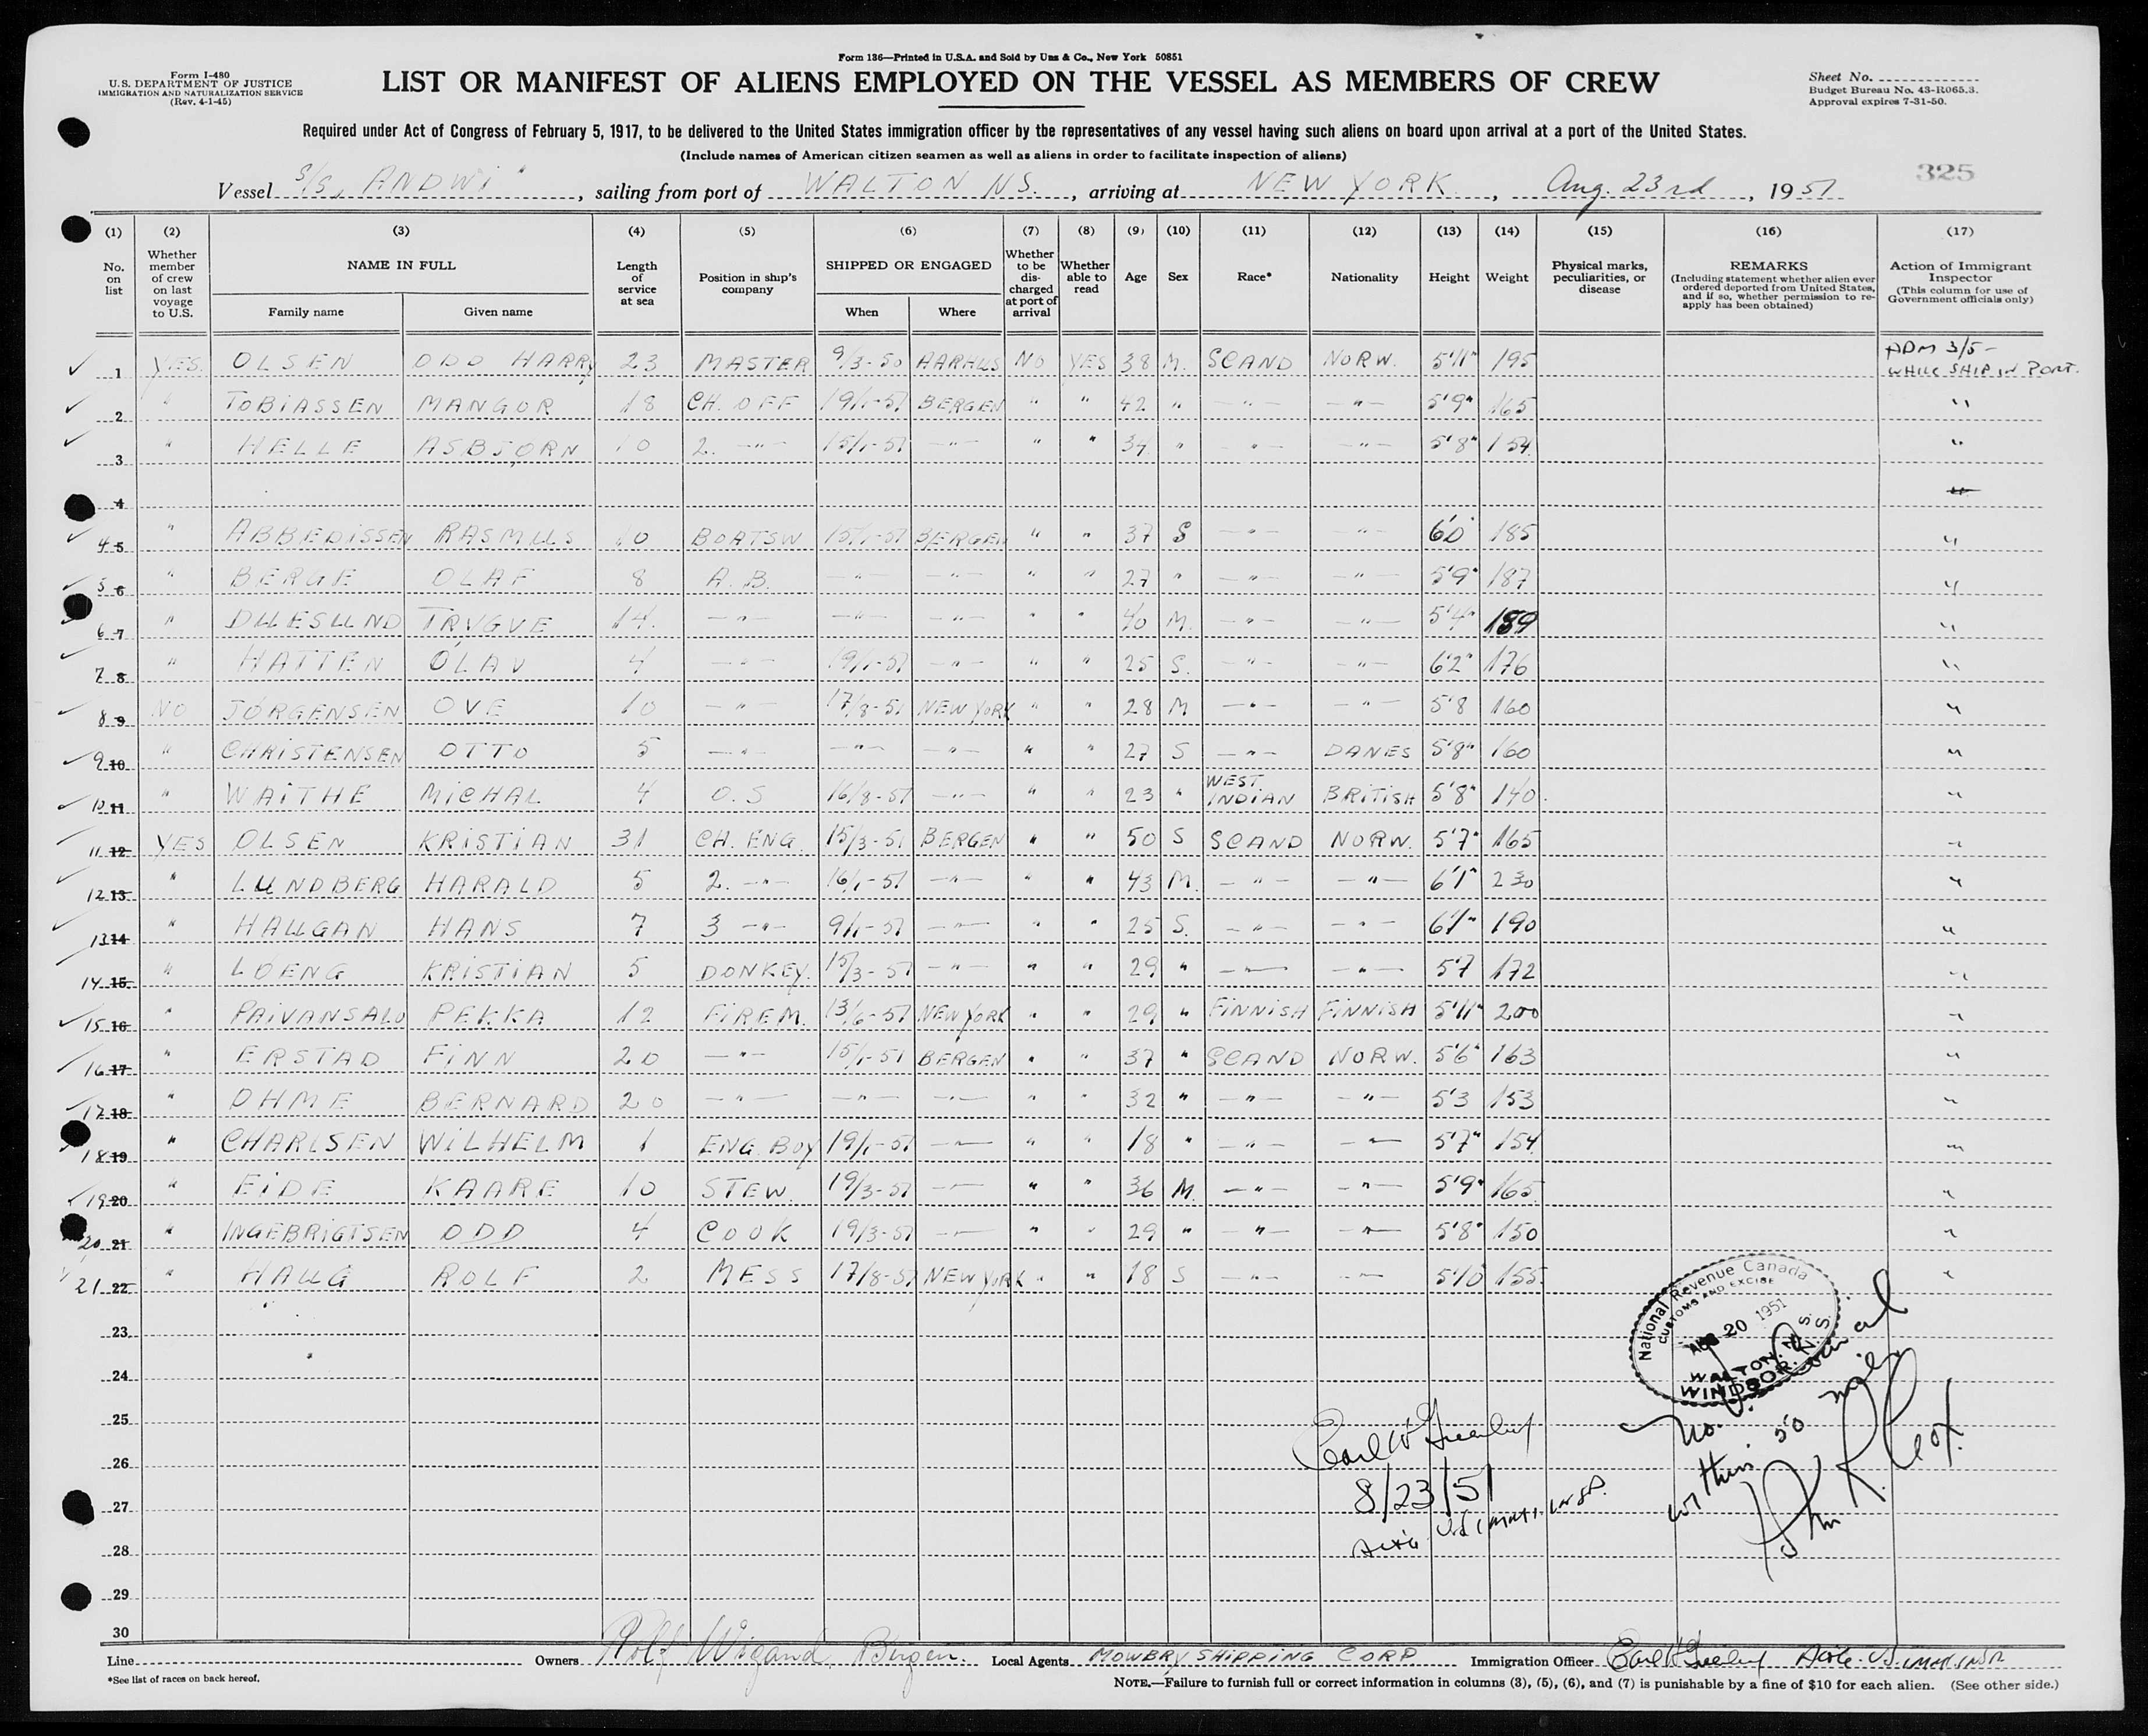 Form 136—Printed in U.S.A. and Sold by Unz & Co., New York 50851
Form I-480
U.S. DEPARTMENT OF JUSTICE
IMMIGRATION AND NATURALIZATION SERVICE
(Rev. 4-1-45)
LIST OR MANIFEST OF ALIENS EMPLOYED ON THE VESSEL AS MEMBERS OF CREW
Sheet No.
Budget Bureau No. 43-R065.3.
Approval expires 7-31-50.
Required under Act of Congress of February 5, 1917, to be delivered to the United States immigration officer by the representatives of any vessel having such aliens on board upon arrival at a port of the United States.
(Include names of American citizen seamen as well as aliens in order to facilitate inspection of aliens)
325
Vessel S/S, ANDWI, sailing from port of WALTON NS., arriving at NEW YORK, Aug. 23rd, 1951
(1) (2) (3) (4) (5) (6) (7) (8) (9) (10) (11) (12) (13) (14) (15) (16) (17)
No. on list
Whether member of crew on last voyage to U.S.
NAME IN FULL
Family name Given name
Length of service at sea
Position in ship's company
SHIPPED OR ENGAGED
When Where
Whether to be discharged at port of arrival
Whether able to read
Age Sex Race* Nationality Height Weight
Physical marks, peculiarities, or disease
REMARKS
(Including statement whether alien ever ordered deported from United States, and if so, whether permission to re-apply has been obtained)
Action of Immigrant Inspector
(This column for use of Government officials only)
1 YES OLSEN ODD HARRY 23 MASTER 9/3-50 AARHUS NO YES 38 M. SCAND NORW. 5'11" 195 ADM 3/5- WHILE SHIP IN PORT.
2 " TOBIASSEN MANGOR 18 CH. OFF 19/1-51 BERGEN " " 42 " -"- -"- 5'9" 165 "
3 " HELLE ASBJORN 10 2. -"- 15/1-51 -"- " " 34 " -"- -"- 5'8" 154 "
4 "
4 5 " ABBEDISSEN RASMUS 10 BOATSW 15/1-51 BERGEN " " 37 S -"- -"- 6'0 185 "
5 6 " BERGE OLAF 8 A.B. -"- -"- " " 27 " -"- -"- 5'9" 187 "
6 7 " DUESUND TRYGVE 14 -"- -"- -"- " " 40 M. -"- -"- 5'4" 189 "
7 8 " HATTEN OLAV 4 -"- 19/1-51 -"- " " 25 S. -"- -"- 6'2" 176 "
8 9 NO JORGENSEN OVE 10 -"- 17/8-51 NEW YORK " " 28 M -"- -"- 5'8 160 "
9 10 " CHRISTENSEN OTTO 5 -"- -"- -"- " " 27 S -"- DANES 5'8" 160 "
10 11 " WAITHE MICHAL 4 O.S 16/8-51 -"- " " 23 " WEST INDIAN BRITISH 5'8" 140 "
11 12 YES OLSEN KRISTIAN 31 CH. ENG. 15/3-51 BERGEN " " 50 S SCAND NORW. 5'7" 165 "
12 13 " LUNDBERG HARALD 5 2. -"- 16/1-51 -"- " " 43 M. -"- -"- 6'1" 230 "
13 14 " HAUGAN HANS 7 3 -"- 9/1-51 -"- " " 25 S. -"- -"- 6'1" 190 "
14 15 " LOENG KRISTIAN 5 DONKEY. 15/3-51 -"- " " 29 " -"- -"- 5'7 172 "
15 16 " PAIVANSALO PEKKA 12 FIREM. 13/6-51 NEW YORK " " 29 " FINNISH FINNISH 5'11" 200 "
16 17 " ERSTAD FINN 20 -"- 15/1-51 BERGEN " " 37 " SCAND NORW. 5'6" 163 "
17 18 " OHME BERNARD 20 -"- -"- -"- " " 32 " -"- -"- 5'3 153 "
18 19 " CHARLSEN WILHELM 1 ENG. BOY 19/1-51 -"- " " 18 " -"- -"- 5'7" 154 "
19 20 " EIDE KAARE 10 STEW. 19/3-51 -"- " " 36 M. -"- -"- 5'9" 165 "
20 21 " INGEBRIGTSEN ODD 4 COOK 19/3-51 -"- " " 29 " -"- -"- 5'8" 150 "
21 22 " HAUG ROLF 2 MESS 17/8-51 NEW YORK " " 18 S -"- -"- 5'10 155 "
23
24
25
26
27
28
29
30
National Revenue Canada
CUSTOMS AND EXCISE
AUG 20 1951
WALTON, N.S.
WINDSOR, N.S.
No
within 50 miles
8/23/51
Line
Owners Rolf Wigand, Bergen.
Local Agents MOWBRY SHIPPING CORP
Immigration Officer
*See list of races on back hereof.
NOTE.—Failure to furnish full or correct information in columns (3), (5), (6), and (7) is punishable by a fine of $10 for each alien. (See other side.)